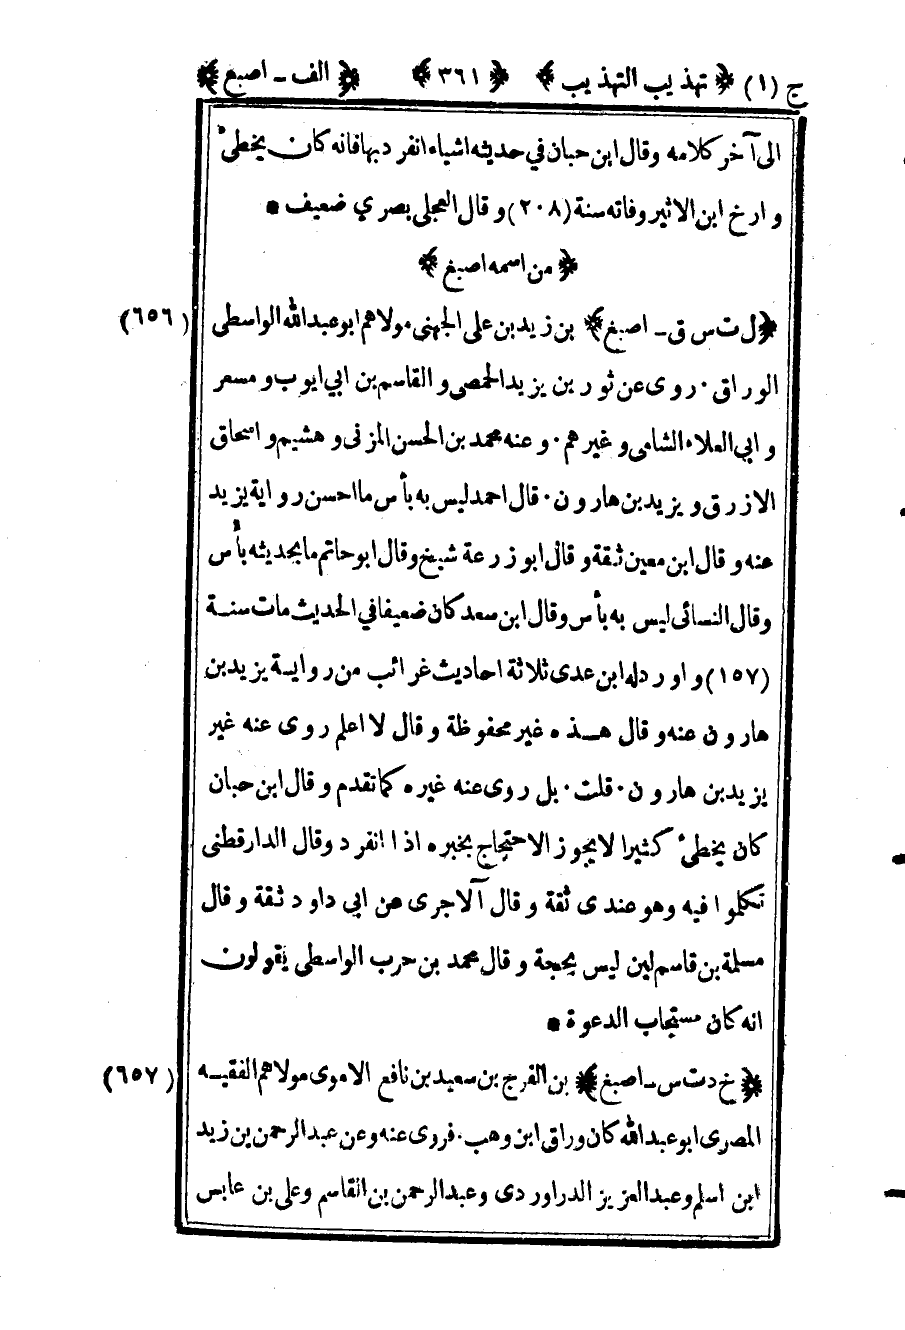 ج (١) ﴿ تهذيب التهذيب ﴾ ﴿ ٣٦١ ﴾ ﴿ الف ـ اصبغ ﴾
الى آخر كلامه وقال ابن حبان في حديثه اشياء انفرد بها فانه كان يخطئ
وارخ ابن الاثير وفاته سنة (٢٠٨) وقال العجلى بصري ضعيف *
﴿ من اسمه اصبغ ﴾
(٦٥٦) ﴿ ل ت س ق ـ اصبغ ﴾ بن زيد بن على الجهنى مولاهم ابو عبدالله الواسطى
الوراق ٠ روى عن ثور بن يزيد الحمصى والقاسم بن ابي ايوب ومسعر
وابي العلاء الشامى وغيرهم ٠ وعنه محمد بن الحسن المزنى وهشيم واسحاق
الازرق ويزيد بن هارون ٠ قال احمد ليس به بأس ما احسن رواية يزيد
عنه وقال ابن معين ثقة وقال ابو زرعة شيخ وقال ابو حاتم ما بحديثه بأس
وقال النسائى ليس به بأس وقال ابن سعد كان ضعيفا في الحديث مات سنة
(١٥٧) واورد له ابن عدى ثلاثة احاديث غرائب من رواية يزيد بن
هارون عنه وقال هذه غير محفوظة وقال لا اعلم روى عنه غير
يزيد بن هارون ٠ قلت ٠ بل روى عنه غيره كما تقدم وقال ابن حبان
كان يخطئ كثيرا لا يجوز الاحتجاج بخبره اذا انفرد وقال الدارقطنى
تكلموا فيه وهو عندى ثقة وقال الآجرى عن ابى داود ثقة وقال
مسلمة بن قاسم لين ليس بحجة وقال محمد بن حرب الواسطى يقولون
انه كان مستجاب الدعوة *
(٦٥٧) ﴿ خ د ت س ـ اصبغ ﴾ بن الفرج بن سعيد بن نافع الاموى مولاهم الفقيه
المصرى ابو عبدالله كان وراق ابن وهب ٠ فروى عنه وعن عبدالرحمن بن زيد
ابن اسلم وعبدالعزيز الدراوردى وعبدالرحمن بن القاسم وعلى بن عابس